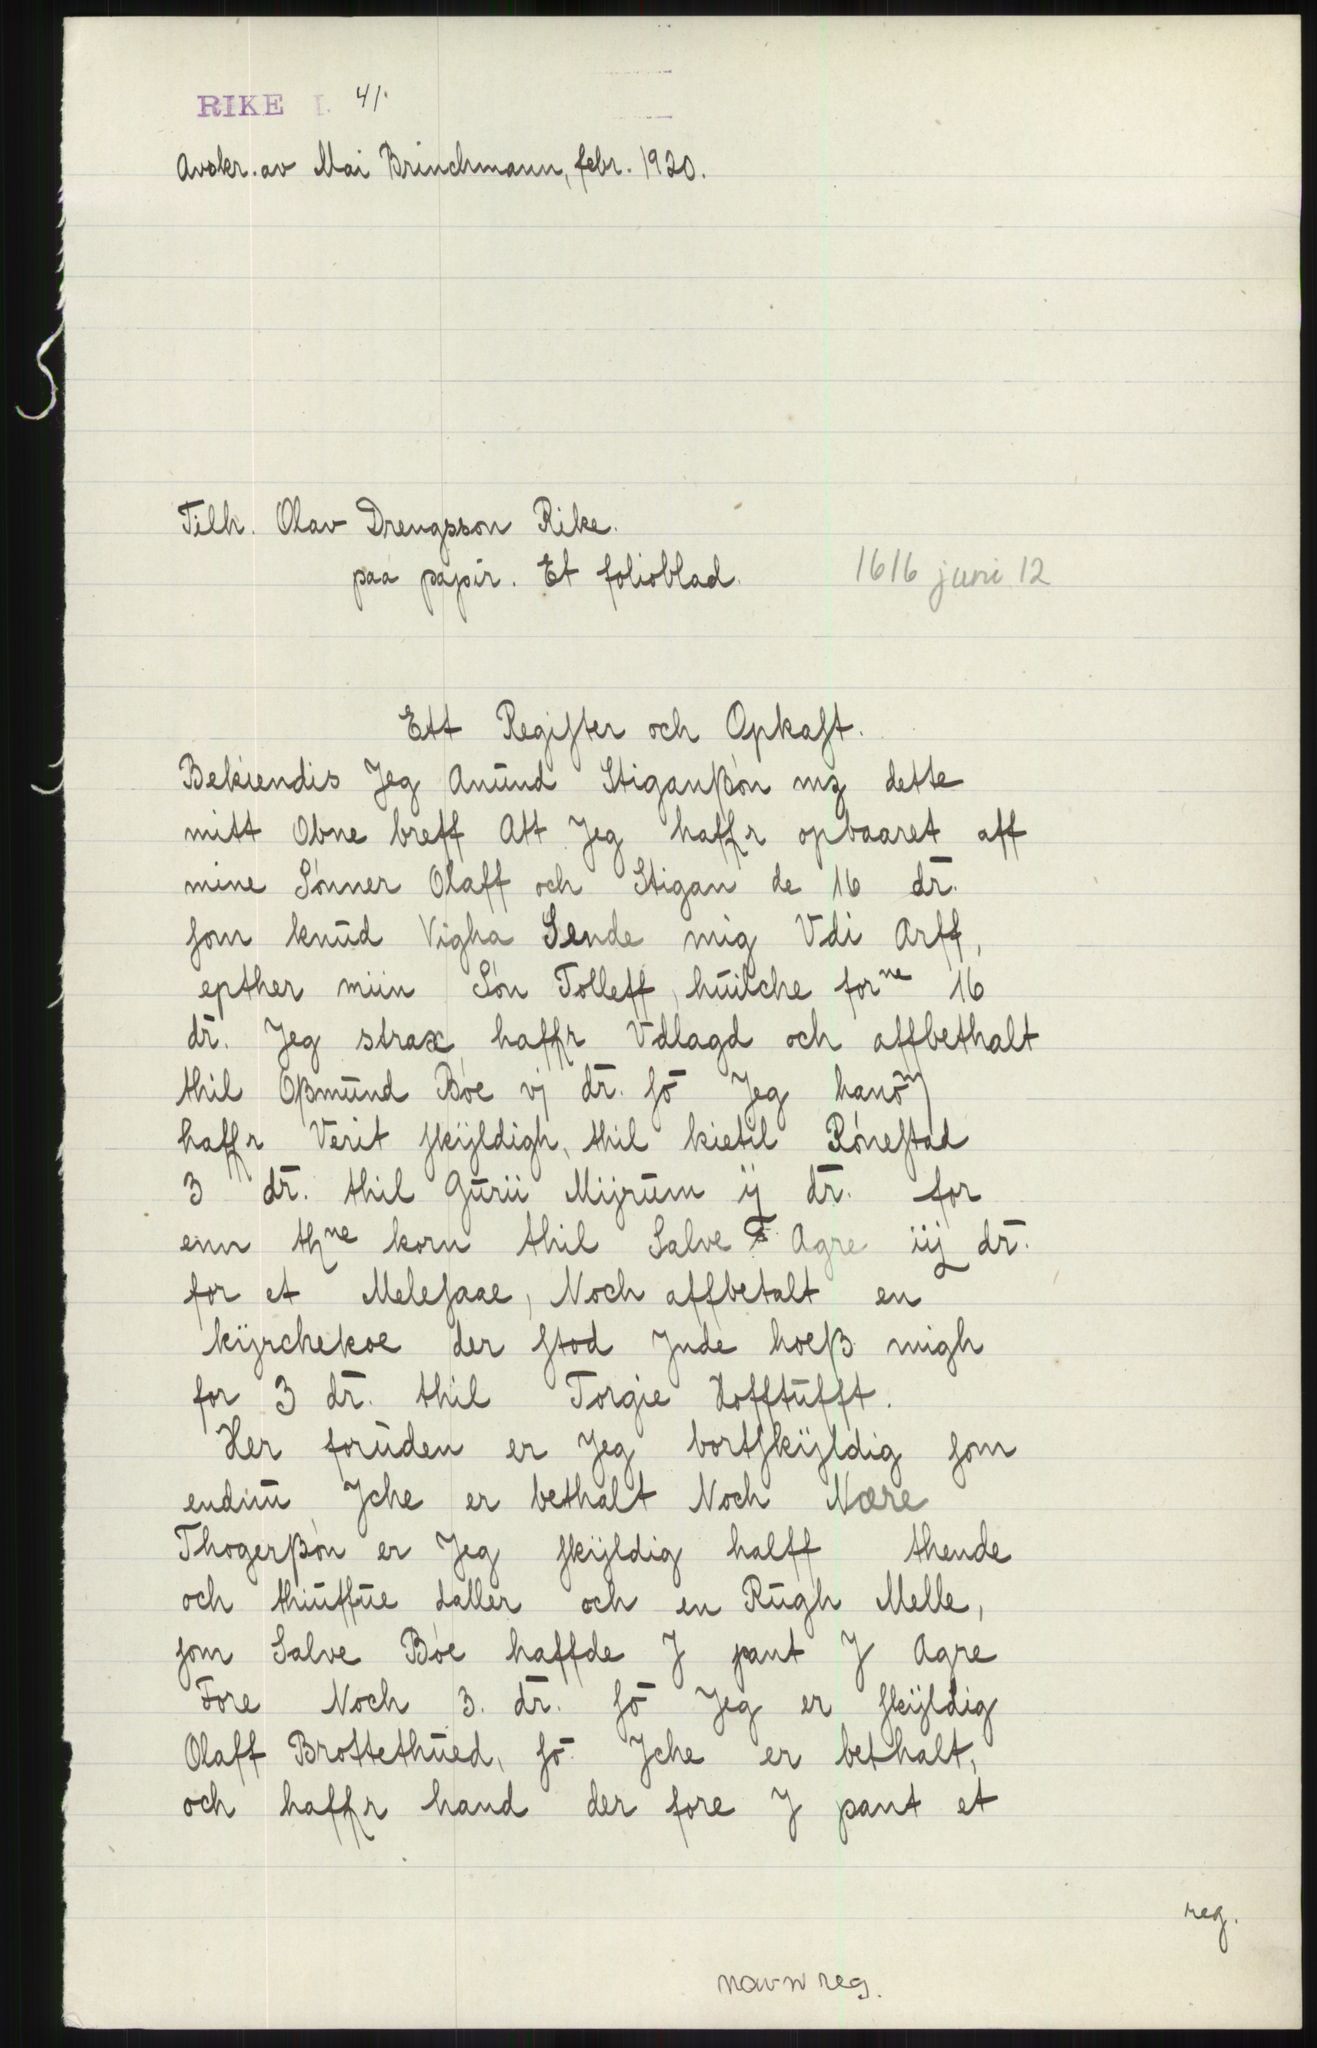 RIKE I. 41.
Avskr. av Mai Brinchmann, febr. 1920.
Tilh. Olav Drengsson Rike.
paa papir. Et folioblad.
1616 juni 12
Ett Regiſter och Opkaſt.
Bekiendis Jeg Anŭnd Stiganßøn mz dette
mitt Obne breff Att Jeg haffr opbaaret aff
mine Sønner Olaff och Stigan de 16 dr̄.
ſom knŭd Vigha Sende mig Vdi Arff,
epther miin Søn Tolleff, hŭilche forⁿᵉ 16
dr̄. Jeg strax haffr Vdlagd och affbethalt
thil Oßmŭnd Bøe vj dr̄. ſō Jeg hanōm
haffr Verit ſkÿldigh, thil kietil Røneſtad
3 dr̄. thil Gŭrii Mijrŭm ij dr̄. for
enn thⁿᵉ korn thil Salve Agre iij dr̄.
for et Meleſaae, Noch affbetalt en
kÿrchekoe der ſtod Jnde hoeß migh
for 3 dr̄. thil Torgie Hofftŭfft.
Her forŭden er Jeg bortſkÿldig ſom
endnŭ Jche er bethalt Noch Nære
Thogerßøn er Jeg ſkÿldig halff thende
och thiŭffŭe daller och en Rŭgh Melle,
ſom Salve Bøe haffde J pant J Agre
Fore Noch 3. dr̄. ſō Jeg er ſkÿldig
Olaff Brottethŭed, ſō Jche er bethalt,
och haffr hand der fore J pant et
reg.
navnreg.